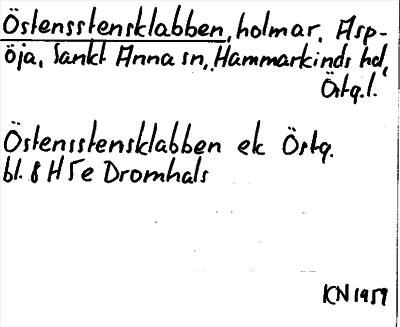 Östensstensklabben, holmar, Asp-
öja, Sankt Anna sn, Hammarkinds hd,
Östg.l.
Östensstensklabben ek Östg.
bl. 8 H 5e Dromhals
KN 1959